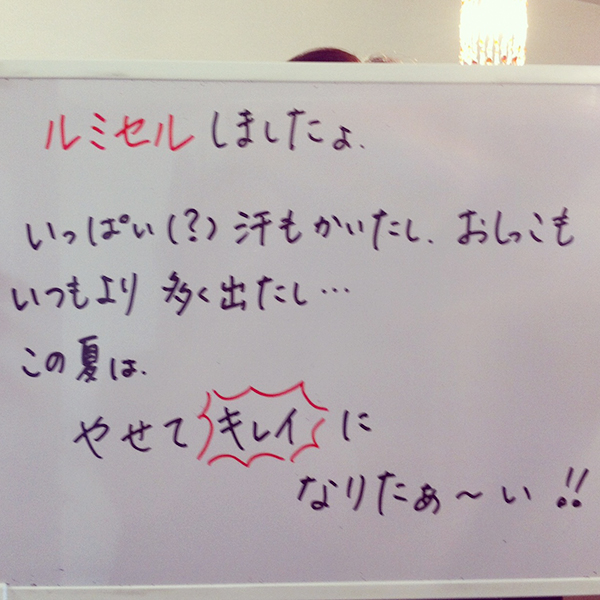 ルミセルしましたよ.
いっぱい(?)汗もかいたし、おしっこも
いつもより多く出たし…
この夏は、
やせてキレイに
なりたぁ〜い!!